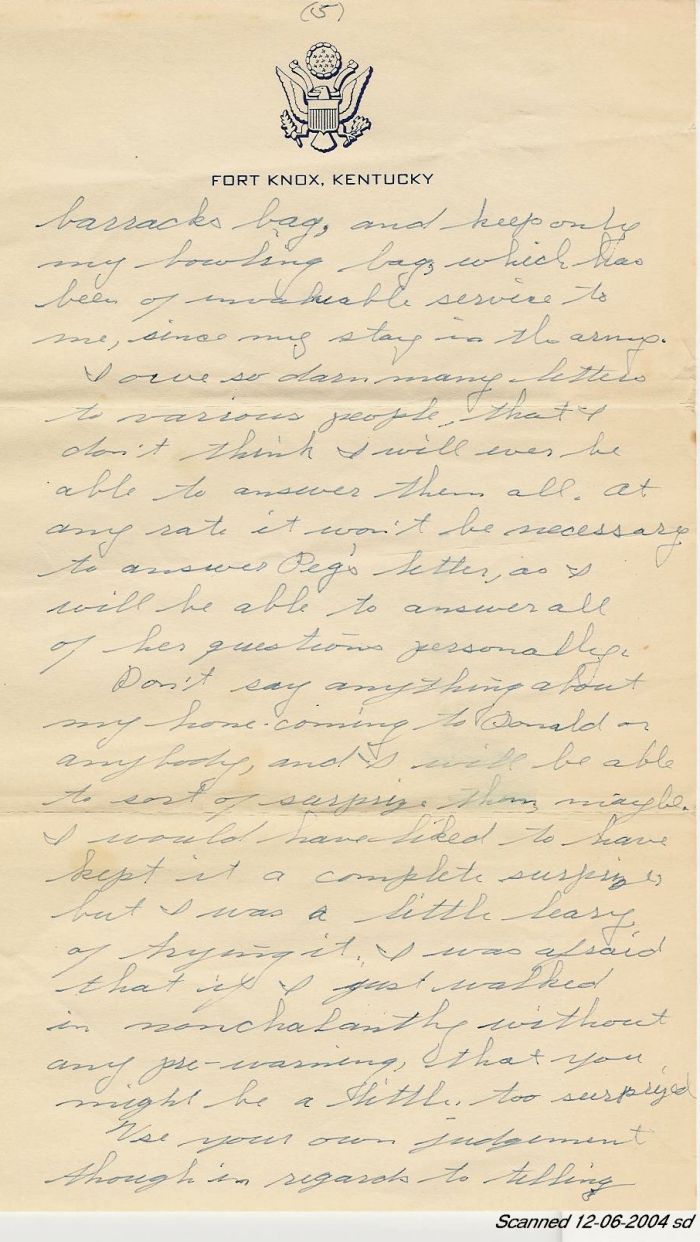 (5)
FORT KNOX, KENTUCKY
barracks bag, and keep only
my bowling bag, which has
been of invaluable service to
me, since my stay in the army.
I owe so darn many letters
to various people, that I
don't think I will ever be
able to answer them all. At
any rate it won't be necessary
to answer Peg's letter, as I
will be able to answer all
of her questions personally.
Don't say anything about
my home-coming to Donald or
anybody, and I will be able
to sort of surprize them, maybe.
I would have liked to have
kept it a complete surprize,
but I was a little leary
of trying it. I was afraid
that if I just walked
in nonchalantly without
any pre-warning, that you
might be a little too surprized
Use your own judgement
though in regards to telling
Scanned 12-06-2004 sd